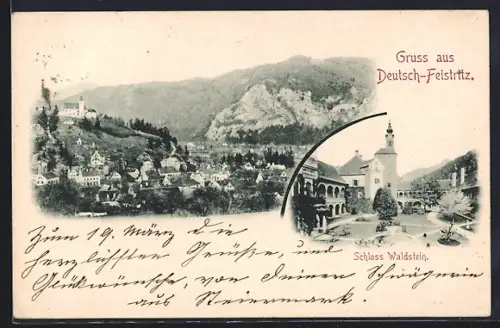 Gruss aus
Deutsch-Feistritz.
Schloss Waldstein.
Zum 19. März die
herzlichsten Grüsse, und
Glückwünsche, von deiner Schwägerin
aus Steiermark.